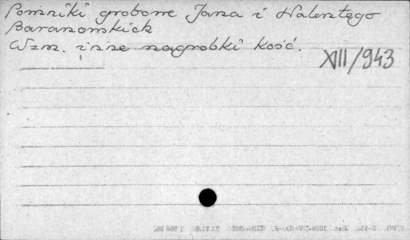 Pomniki grobowe Jana i Walentego
Baranowskich
Wzm. inne nagrobki kość.
XIII/943